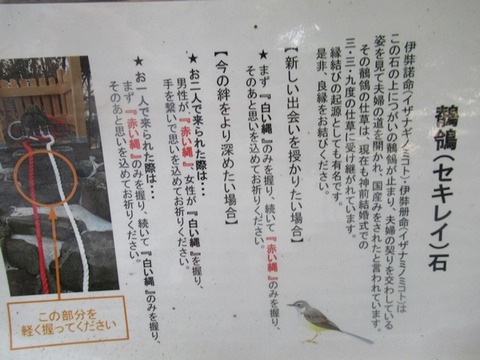 鶺鴒（セキレイ）石
伊弉諾命（イザナギノミコト）・伊弉冊命（イザナミノミコト）は
この石の上につがいの鶺鴒が止まり、夫婦の契りを交わしている
姿を見て夫婦の道を開かれ、国産みをされたと言われています。
その鶺鴒の仕草は、現在も神前結婚式での
三・三・九度の仕草に受け継がれています。
縁結びの起源としても有名です。
是非、良縁をお結びください。
【新しい出会いを授かりたい場合】
★まず『白い縄』のみを握り、続いて『赤い縄』のみを握り、
そのあと思いを込めてお祈りください。
【今の絆をより深めたい場合】
★お二人で来られた際は・・・
男性が、『赤い縄』、女性が『白い縄』を握り、
手を繋いで思いを込めてお祈りください。
★お一人で来られた際は・・・
まず『赤い縄』のみを握り、続いて『白い縄』のみを握り、
そのあと思いを込めてお祈りください。
この部分を
軽く握ってください